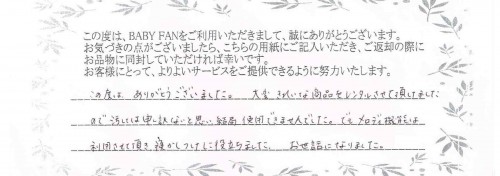 この度は、BABY FANをご利用いただきまして、誠にありがとうございます。
お気づきの点がございましたら、こちらの用紙にご記入いただき、ご返却の際に
お品物に同封していただければ幸いです。
お客様にとって、よりよいサービスをご提供できるように努力いたします。
この度は、ありがとうございました。 大変きれいな商品をレンタルさせて頂けました
ので汚しては申し訳ないと思い、結局使用できませんでした。でもメロディ機能は
利用させて頂き寝かしつけに役立ちました。 お世話になりました。